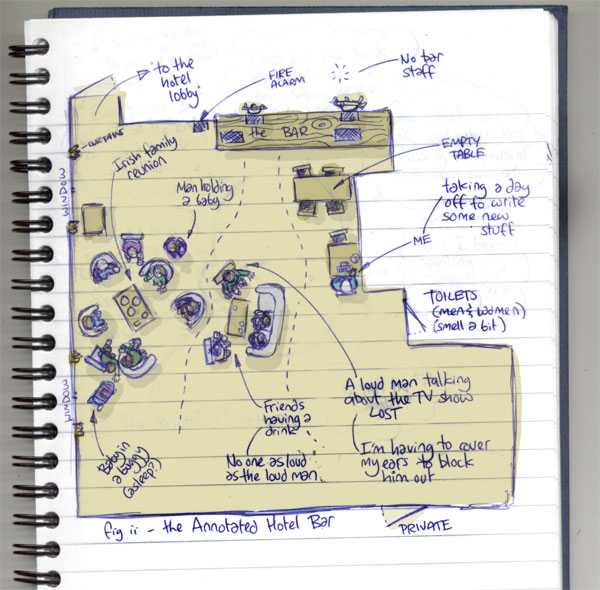 to the
hotel
lobby
FIRE
ALARM
No bar
staff
CURTAINS
the BAR
Irish family
reunion
EMPTY
TABLE
Man holding
a baby
taking a day
off to write
some new
stuff
WINDOW
ME
TOILETS
(men & women)
(smell a bit)
A loud man talking
about the TV show
LOST
Friends
having a
drink
WINDOW
I'm having to cover
my ears to block
him out
Baby in
a buggy
(asleep?)
No one as loud
as the loud man
fig ii - the Annotated Hotel Bar
PRIVATE